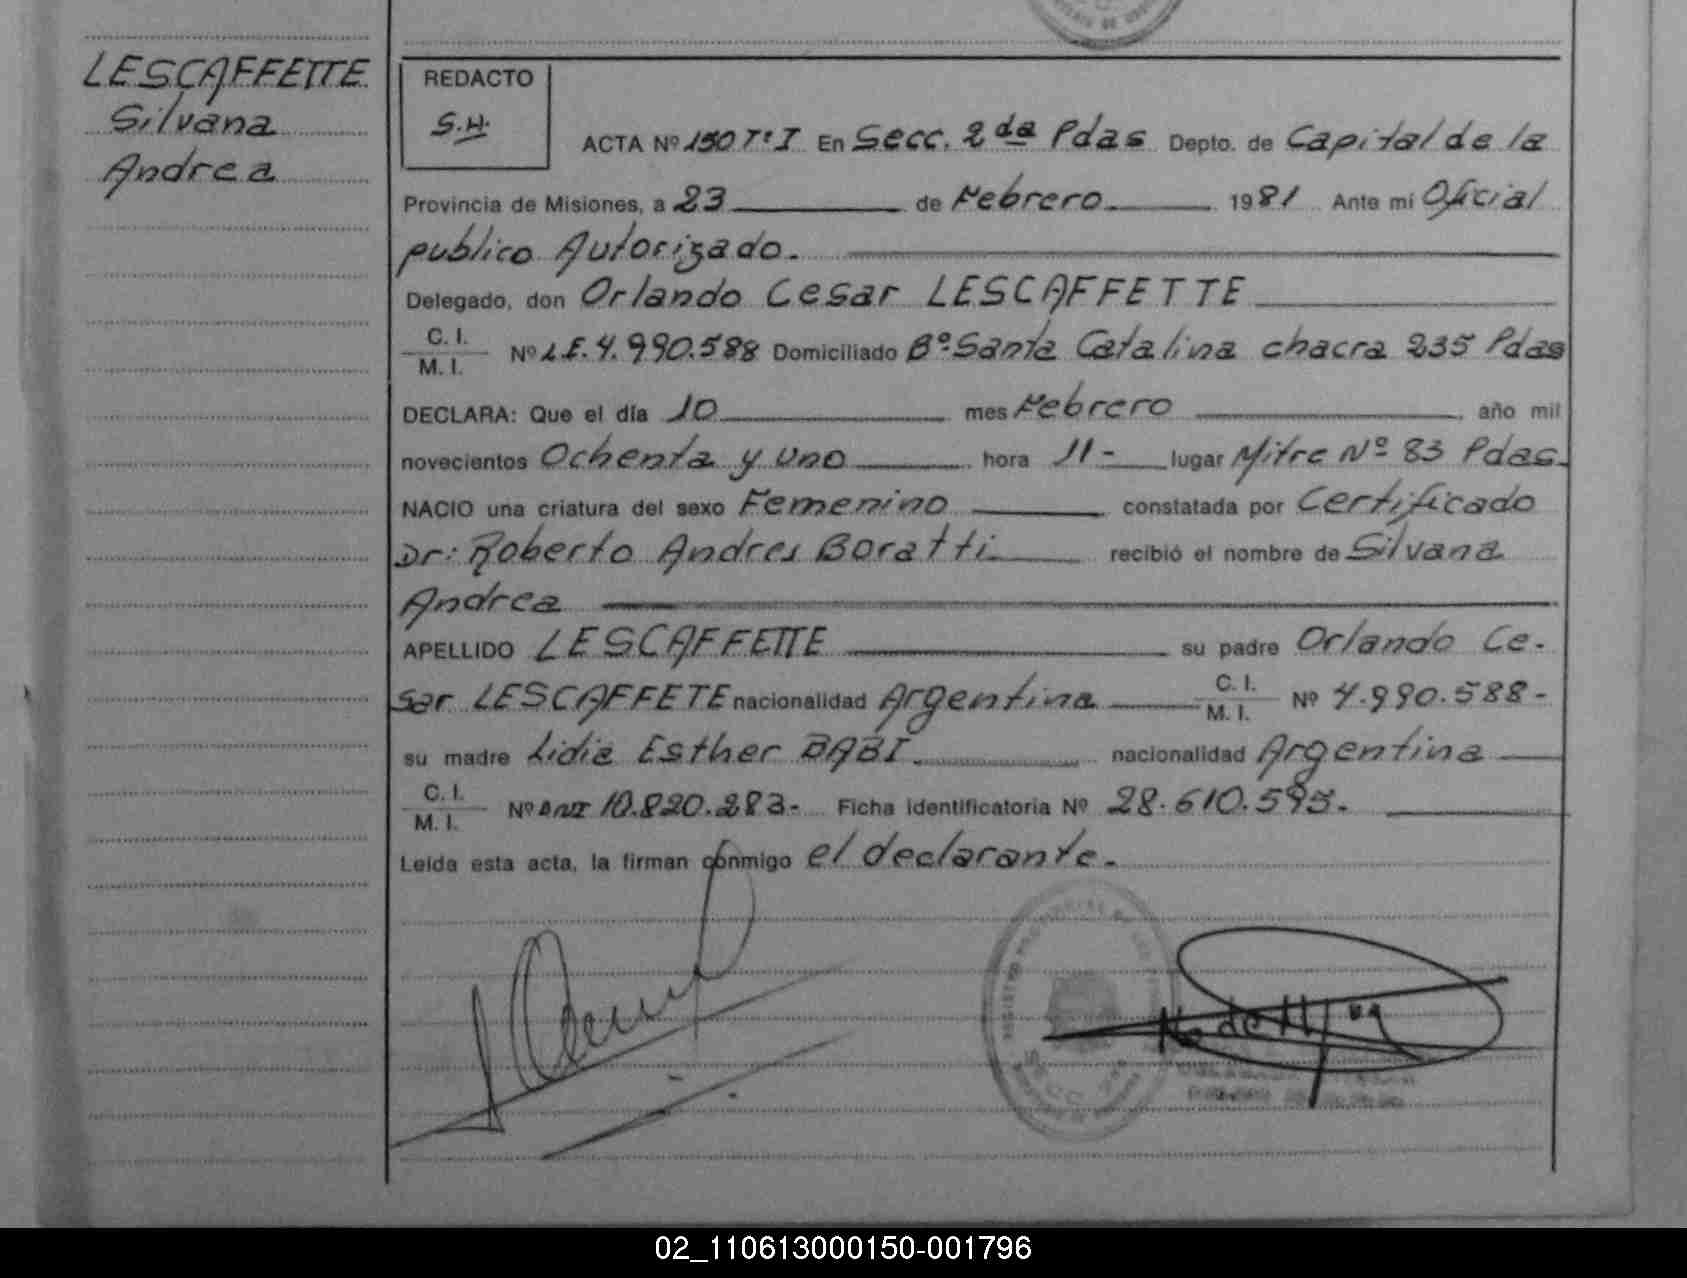 LESCAFFETTE
Silvana
Andrea
REDACTO
S.H.
ACTA Nº 150 Tº I En Secc. 2da Pdas Depto. de Capital de la
Provincia de Misiones, a 23 de Febrero 1981 Ante mí Oficial
publico Autorizado.
Delegado, don Orlando Cesar LESCAFFETTE
C. I.
M. I. Nº L.E. 4.990.588 Domiciliado Bº Santa Catalina chacra 235 Pdas
DECLARA: Que el día 10 mes Febrero año mil
novecientos Ochenta y uno hora 11- lugar Mitre Nº 83 Pdas.
NACIO una criatura del sexo Femenino constatada por Certificado
Dr: Roberto Andres Boratti recibió el nombre de Silvana
Andrea
APELLIDO LESCAFFETTE su padre Orlando Ce-
sar LESCAFFETE nacionalidad Argentina C. I.
M. I. Nº 4.990.588-
su madre Lidia Esther BABI nacionalidad Argentina
C. I.
M. I. Nº DNI 10.820.283.- Ficha identificatoria Nº 28.610.595.
Leída esta acta, la firman conmigo el declarante.
02_110613000150-001796